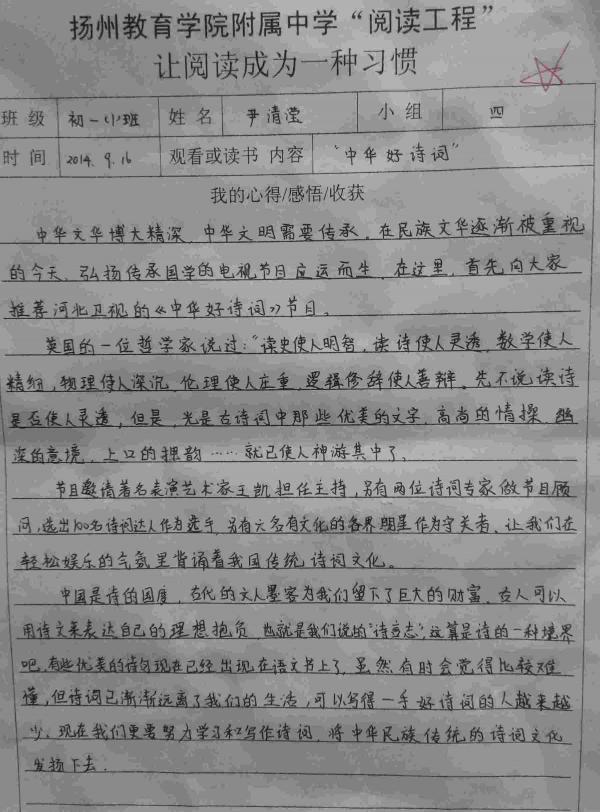 扬州教育学院附属中学“阅读工程”
让阅读成为一种习惯
班级 初一(1)班 姓名 尹清滢 小组 四
时间 2014.9.16 观看或读书 内容 “中华好诗词”
我的心得/感悟/收获
中华文华博大精深，中华文明需要传承，在民族文华逐渐被重视
的今天，弘扬传承国学的电视节目应运而生，在这里，首先向大家
推荐河北卫视的《中华好诗词》节目。
英国的一位哲学家说过：“读史使人明智，读诗使人灵透，数学使人
精细，物理使人深沉，伦理使人庄重，逻辑修辞使人善辩。先不说读诗
是否使人灵透，但是，光是古诗词中那些优美的文字，高尚的情操，幽
深的意境，上口的押韵……就已使人神游其中了。
节目邀请著名表演艺术家王凯担任主持，另有两位诗词专家做节目顾
问，选出100名诗词达人作为选手，另有六名有文化的各界明星作为守关者，让我们在
轻松娱乐的气氛里背诵着我国传统诗词文化。
中国是诗的国度，古代的文人墨客为我们留下了巨大的财富，古人可以
用诗文来表达自己的理想抱负，也就是我们说的“诗言志”，这算是诗的一种境界
吧，有些优美的诗句现在已经出现在语文书上了，虽然有时会觉得比较难
懂，但诗词已渐渐远离了我们的生活，可以写得一手好诗词的人越来越
少，现在我们更要努力学习和写作诗词，将中华民族传统的诗词文化
发扬下去。